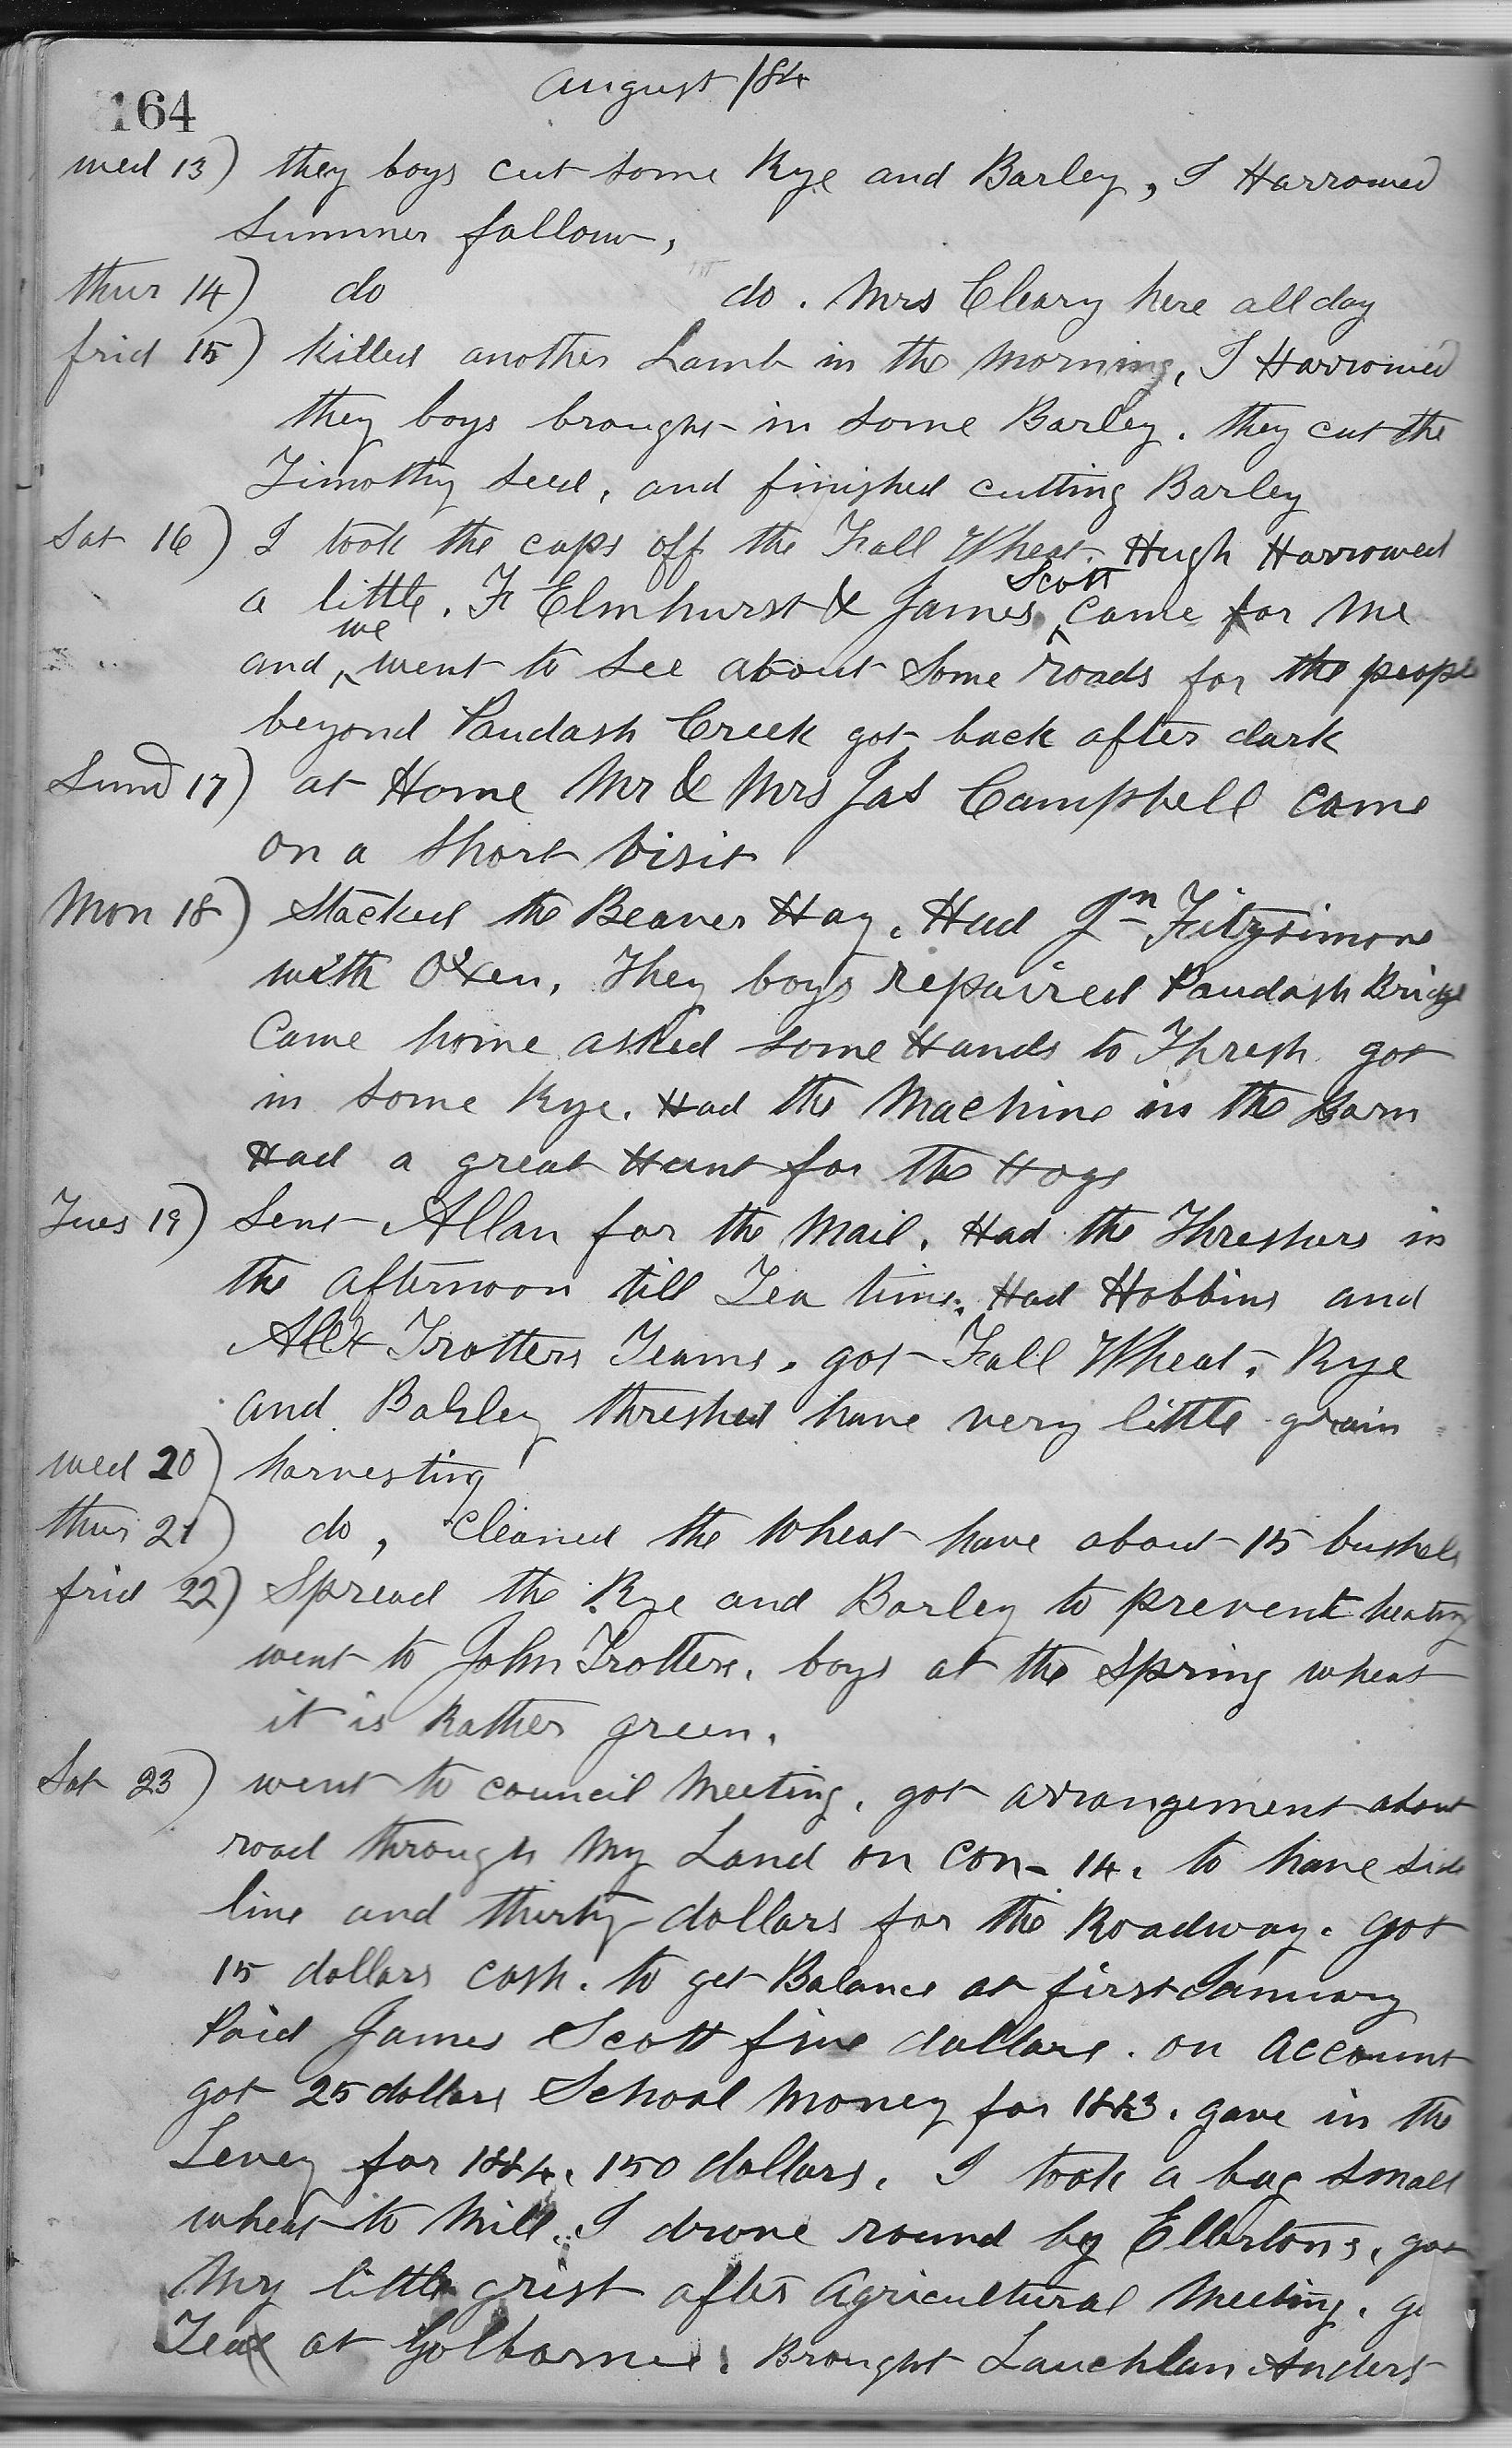 164
August /84
wed 13) they boys cut some Rye and Barley, I Harrowed
Summer fallow,
thur 14) do do. Mrs Cleary here all day
frid 15) killed another Lamb in the Morning, I Harrowed
they boys brought in some Barley. they cut the
Timothy seed, and finished cutting Barley
Sat 16) I took the caps off the Fall Wheat. Hugh Harrowed
a little. Fr Elmhurst & James Scott came for me
and we went to see about some roads for the people
beyond Paudash Creek got back after dark
Sund 17) at Home Mr & Mrs Jas Campbell came
on a short visit
Mon 18) Stacked the Beaver Hay. Had Jn Fitzsimons
with Oxen. They boys repaired Paudash Bridge
Came home asked some Hands to Thresh got
in some Rye. Had the Machine in the Barn
Had a great Hunt for the Hogs
Tues 19) Sent Allan for the Mail. Had the Threshers in
the afternoon till Tea time. Had Hobbins and
Alex Trotters Teams. got Fall Wheat. Rye
and Barley threshed have very little grain
wed 20) harvesting
thur 21) do, cleaned the wheat have about 15 bushels
frid 22) Spread the Rye and Barley to prevent heating
went to John Trotters. boys at the Spring wheat
it is Rather green.
Sat 23) went to council Meeting. got arrangement about
road through my Land on con- 14. to have side
line and thirty dollars for the Roadway. got
15 dollars cash. to get Balance at first January
Paid James Scott five dollars. on account
got 25 dollars School Money for 1883. gave in the
Levey for 1884. 150 dollars. I took a bag small
wheat to Mill. I drove round by Ellertons, got
My little grist after Agricultural Meeting. g
Tea at Golbornes. Brought Lauchlan Anders